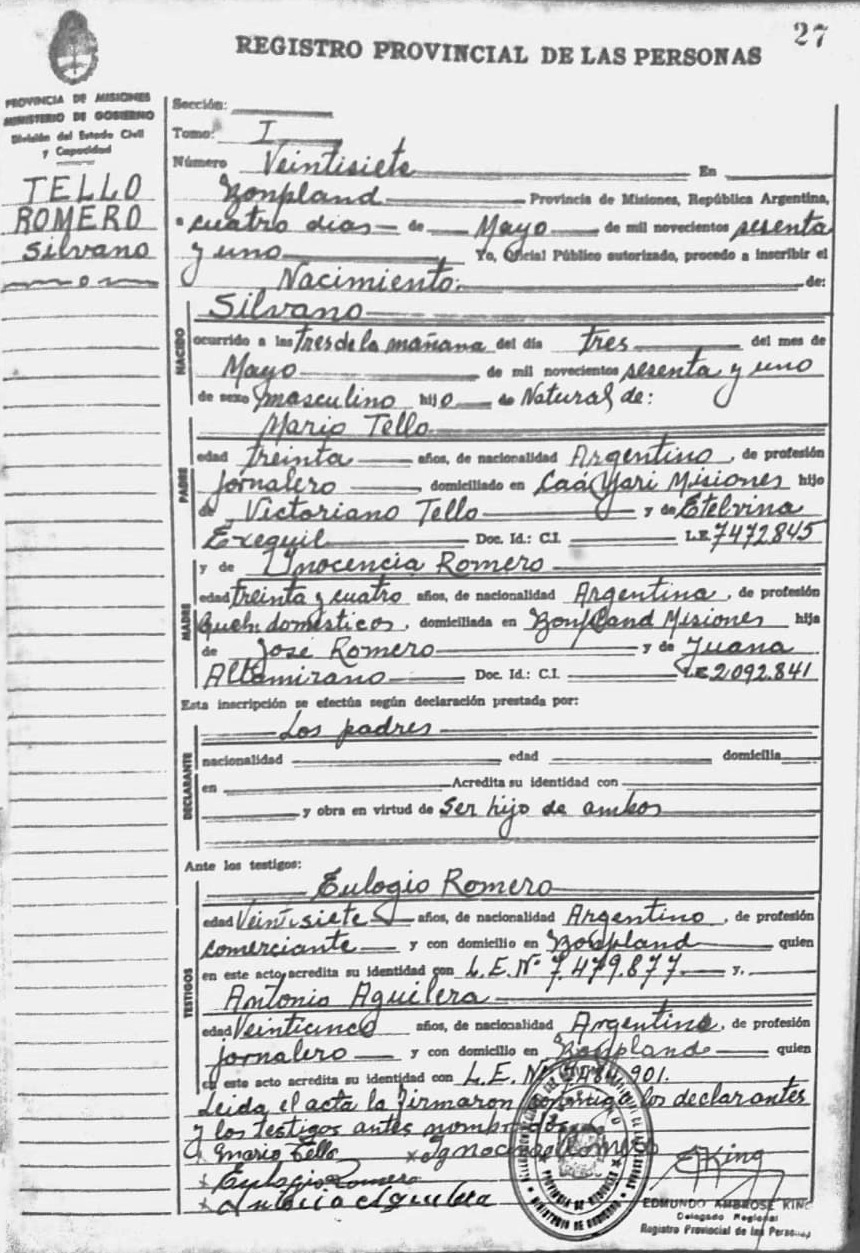 27
REGISTRO PROVINCIAL DE LAS PERSONAS
PROVINCIA DE MISIONES
MINISTERIO DE GOBIERNO
División del Estado Civil
y Capacidad
TELLO
ROMERO
Silvano
Sección:
Tomo: I
Número Veintisiete En
Bonpland Provincia de Misiones, República Argentina,
a cuatro dias de Mayo de mil novecientos sesenta
y uno Yo, Oficial Público autorizado, procedo a inscribir el
Nacimiento. de:
NACIDO
Silvano
ocurrido a las tres de la mañana del día tres del mes de
Mayo de mil novecientos sesenta y uno
de sexo masculino hijo de Natural de:
PADRE
Mario Tello
edad treinta años, de nacionalidad Argentino, de profesión
jornalero domiciliado en Caá Yari Misiones hijo
de Victoriano Tello y de Etelvina
Exequil Doc. Id.: C.I. L.E 7472845
MADRE
y de Inocencia Romero
edad treinta y cuatro años, de nacionalidad Argentina, de profesión
Queh domésticos, domiciliada en Bonpland Misiones hija
de José Romero y de Juana
Altamirano Doc. Id.: C.I. L.E 2.092.841
Esta inscripción se efectúa según declaración prestada por:
DECLARANTE
Los padres
nacionalidad edad domicilia
en Acredita su identidad con
y obra en virtud de ser hijo de ambos
Ante los testigos:
TESTIGOS
Eulogio Romero
edad Veintisiete años, de nacionalidad Argentino, de profesión
comerciante y con domicilio en Bonpland quien
en este acto, acredita su identidad con L.E. Nº 7.479.877 y,
Antonio Aguilera
edad Veinticinco años, de nacionalidad Argentino, de profesión
jornalero y con domicilio en Bonpland quien
en este acto acredita su identidad con L.E. Nº 901.
Leida el acta la firmaron conmigo los declarantes
y los testigos antes nombrados.
x Mario Tello x Ignocencia Romero
x Eulogio Romero EKing
x Antonio Aguilera
EDMUNDO AMBROSE KING
Delegado Regional
Registro Provincial de las Personas
PROVINCIA DE MISIONES
MINISTERIO DE GOBIERNO